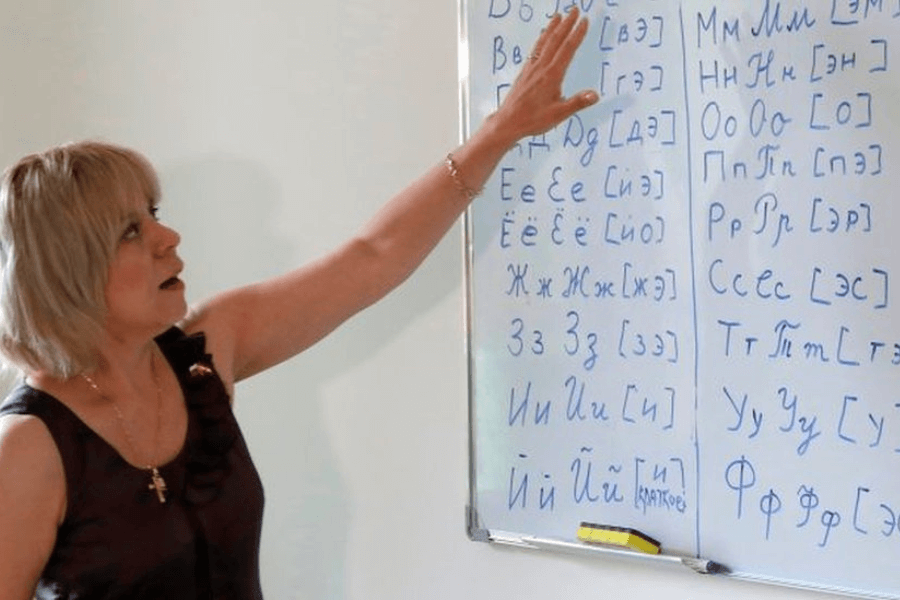 Вв [вэ]
[гэ]
Дд Дд [дэ]
Ее Ее [йэ]
Ёё Ёё [йо]
Жж Жж [жэ]
Зз Зз [зэ]
Ии Ии [и]
Йй Йй [и краткое]
Мм Мм [эм
Нн Нн [эн]
Оо Оо [о]
Пп Пп [пэ]
Рр Рр [эр]
Сс Сс [эс]
Тт Тт [тэ
Уу Уу [у]
Фф Фф [э